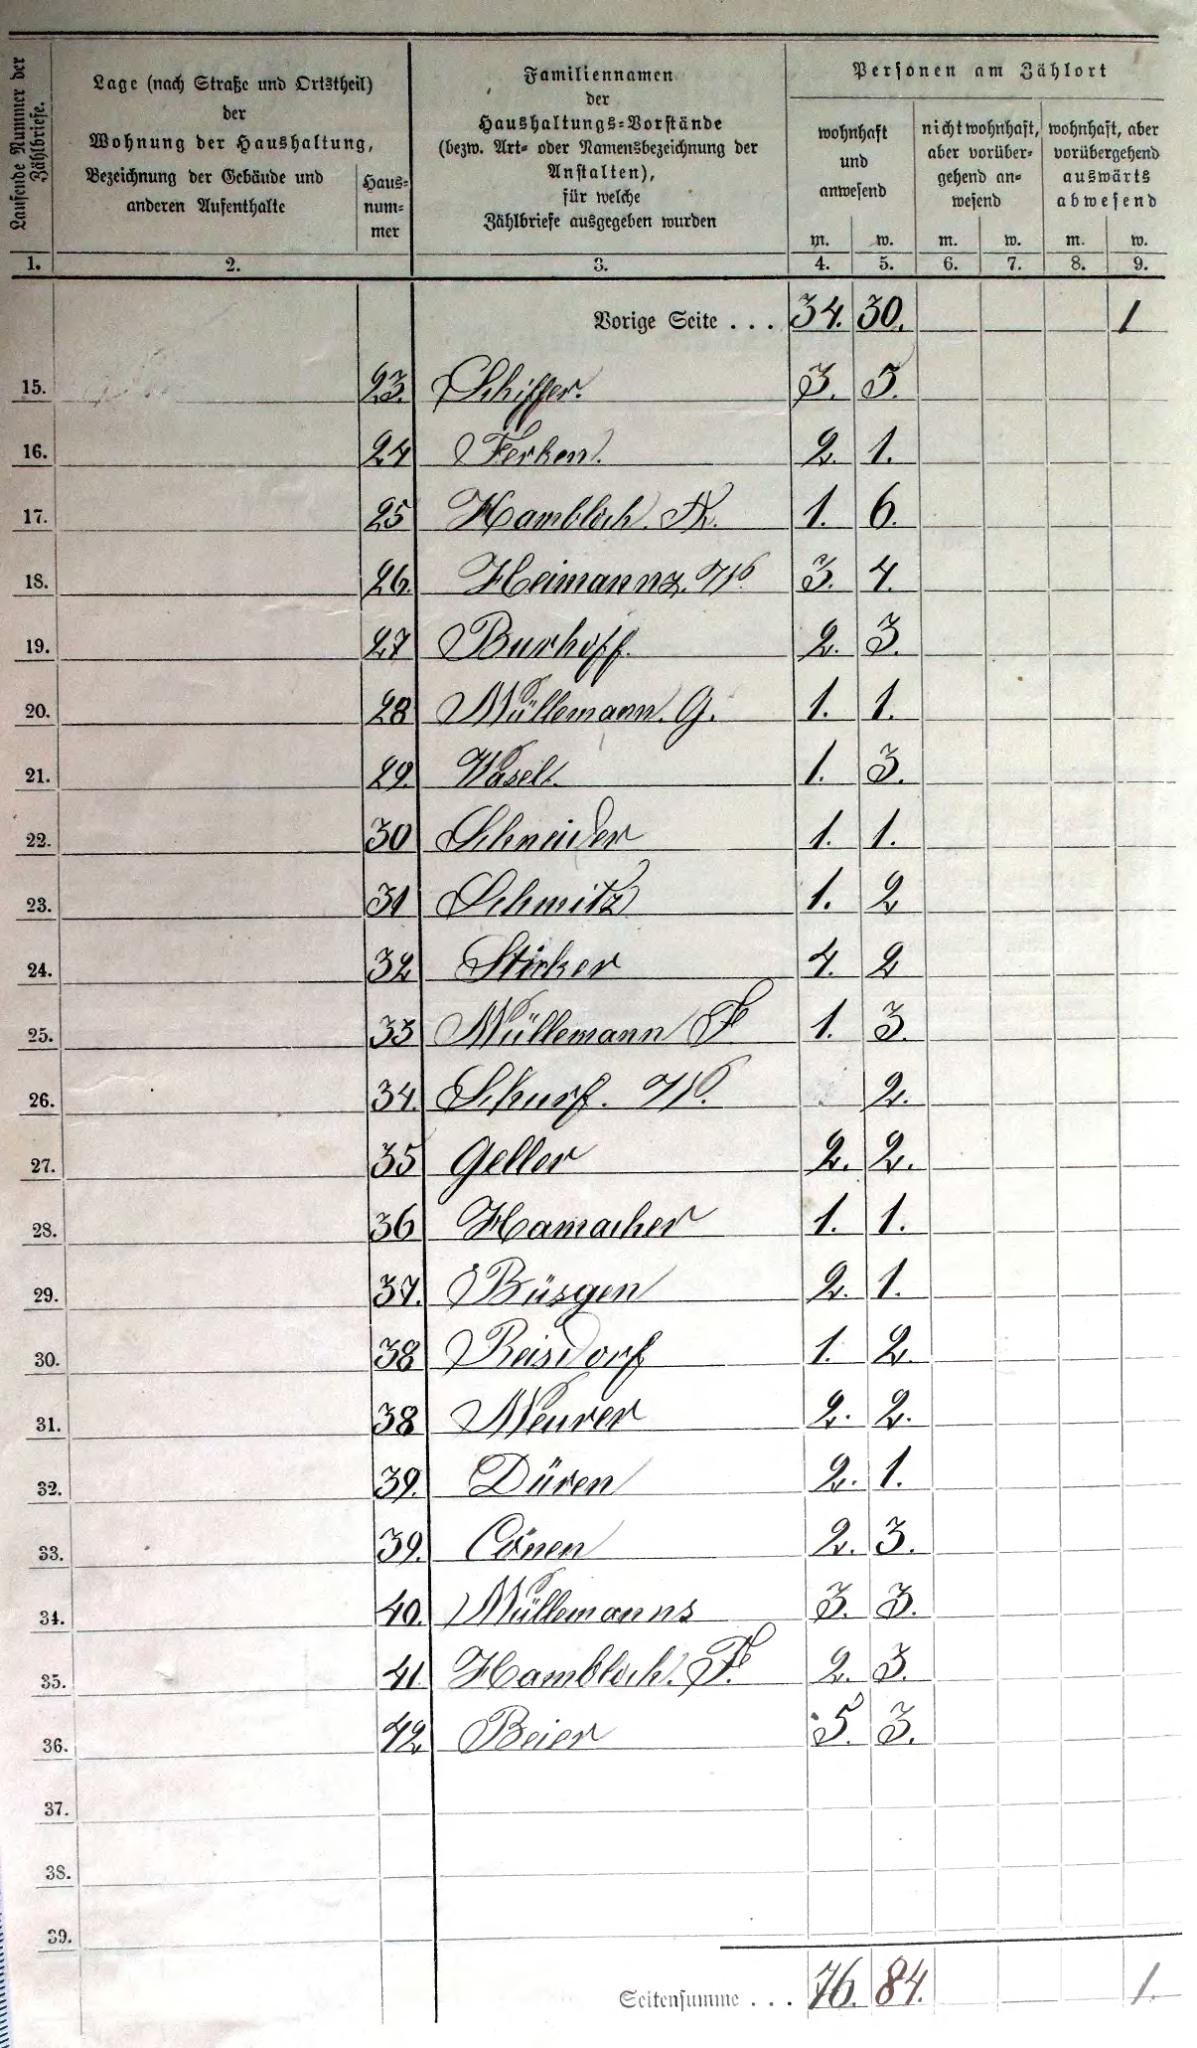 Laufende Nummer der Zählbriefe.
Lage (nach Straße und Ortstheil)
der
Wohnung der Haushaltung,
Bezeichnung der Gebäude und
anderen Aufenthalte
Haus-
num-
mer
Familiennamen
der
Haushaltungs-Vorstände
(bezw. Art- oder Namensbezeichnung der
Anstalten),
für welche
Zählbriefe ausgegeben wurden
Personen am Zählort
wohnhaft
und
anwesend
nicht wohnhaft,
aber vorüber-
gehend an-
wesend
wohnhaft, aber
vorübergehend
auswärts
abwesend
m. w. m. w. m. w.
1. 2. 3. 4. 5. 6. 7. 8. 9.
Vorige Seite . . . 34. 30. 1
15. 23. Schiffer. 3. 5.
16. 24 Ferken. 2. 1.
17. 25 Hambloch. 1. 6.
18. 26. Heimannz. 3. 4.
19. 27 Burhoff. 2. 3.
20. 28 Müllemann. G. 1. 1.
21. 29. Wasel. 1. 3.
22. 30 Schneider 1. 1.
23. 31 Schmitz 1. 2
24. 32 Stirker 4. 2
25. 33 Müllemann F 1. 3.
26. 34. Schurf. 2.
27. 35 Geller 2. 2.
28. 36 Hamacher 1. 1.
29. 37. Büsgen 2. 1.
30. 38 Reisdorf 1. 2.
31. 38 Meurer 2. 2.
32. 39. Düren 2. 1.
33. 39. Cönen 2. 3.
34. 40. Müllemanns 3. 3.
35. 41. Hambloch. F. 2. 3.
36. 42. Beier 5. 3.
37.
38.
39.
Seitensumme . . . 76. 84. 1.